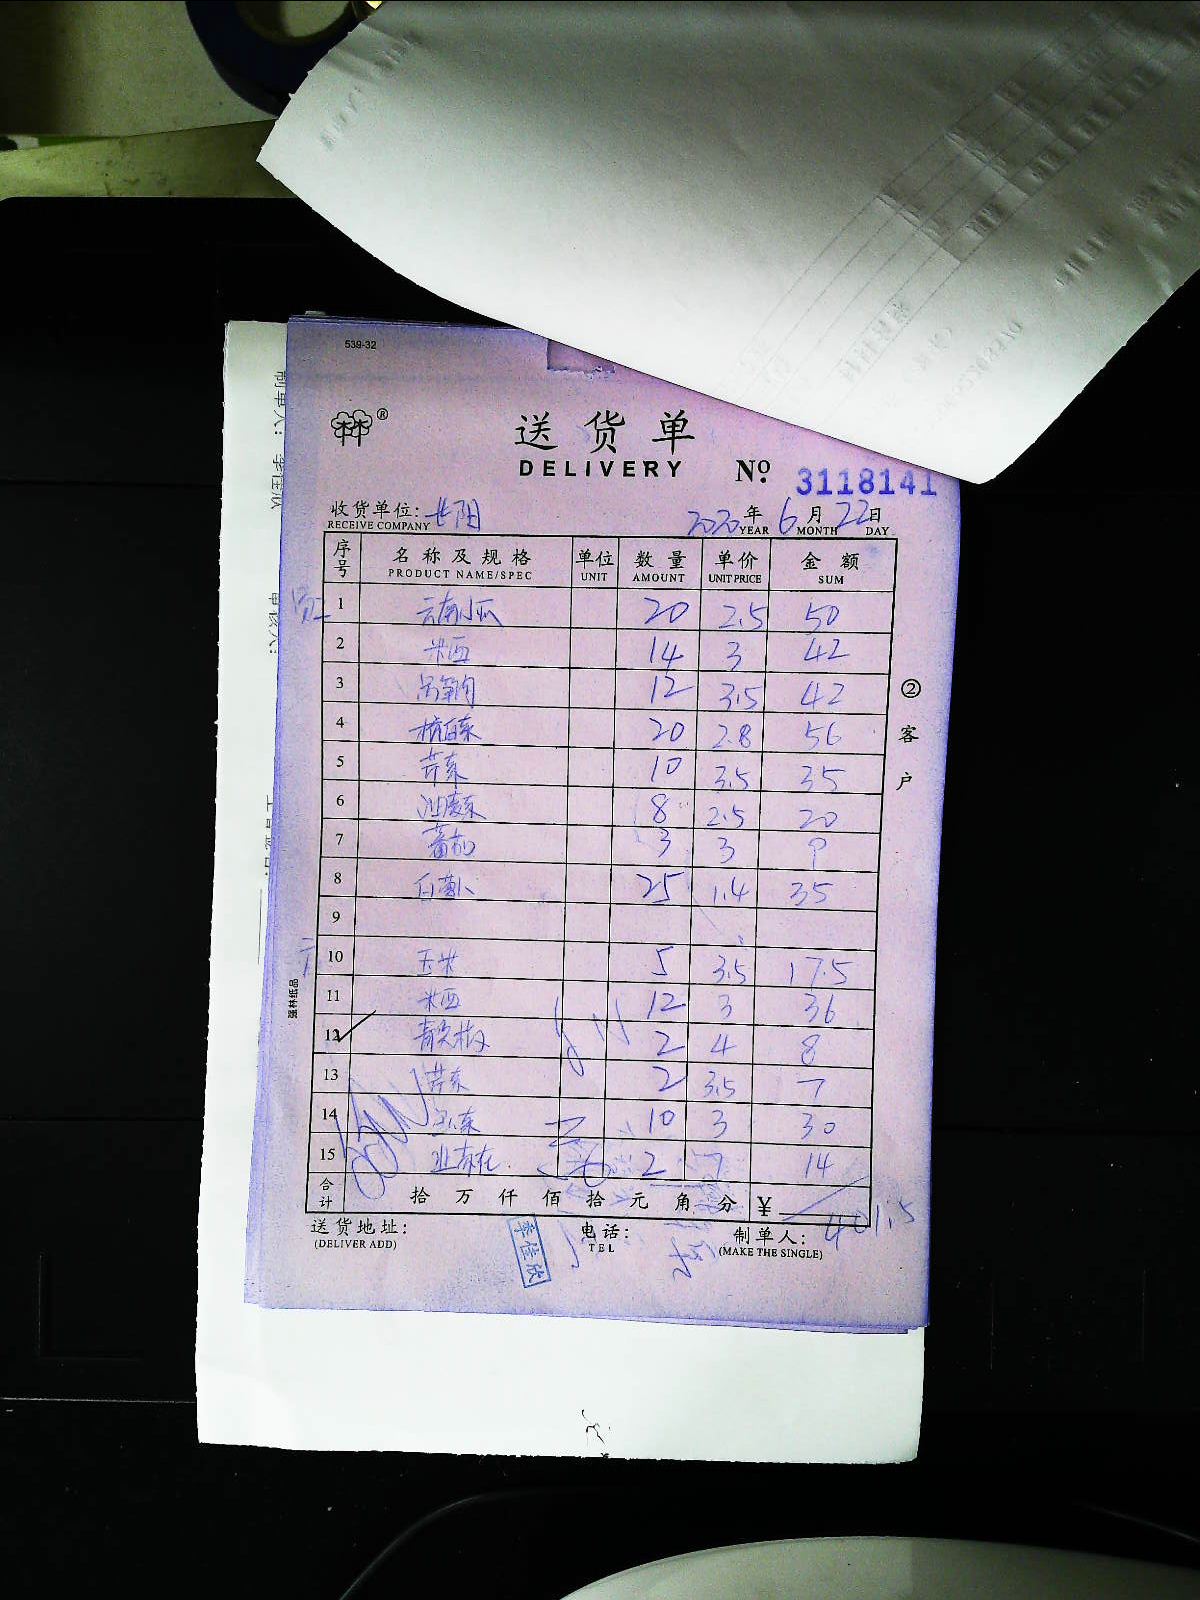 539-32
送货单
DELIVERY № 3118141
收货单位: 长阳 2020年 6月 22日
RECEIVE COMPANY YEAR MONTH DAY
序号 名称及规格 单位 数量 单价 金额
PRODUCT NAME/SPEC UNIT AMOUNT UNIT PRICE SUM
1 云南小瓜 20 2.5 50
2 米西 14 3 42
3 12 3.5 42
4 杭白菜 20 2.8 56
5 芹菜 10 3.5 35
6 油麦菜 8 2.5 20
7 蕃茄 3 3 9
8 白萝卜 25 1.4 35
9
10 玉米 5 3.5 17.5
11 米西 12 3 36
12 青尖椒 2 4 8
13 芹菜 2 3.5 7
14 10 3 30
15 2 7 14
合计 拾万仟佰拾元角分 ¥ 401.5
送货地址: 电话: 制单人:
(DELIVER ADD) TEL (MAKE THE SINGLE)
李佳欣
②客户
强林纸品
制单人: 李佳欣
审核人: